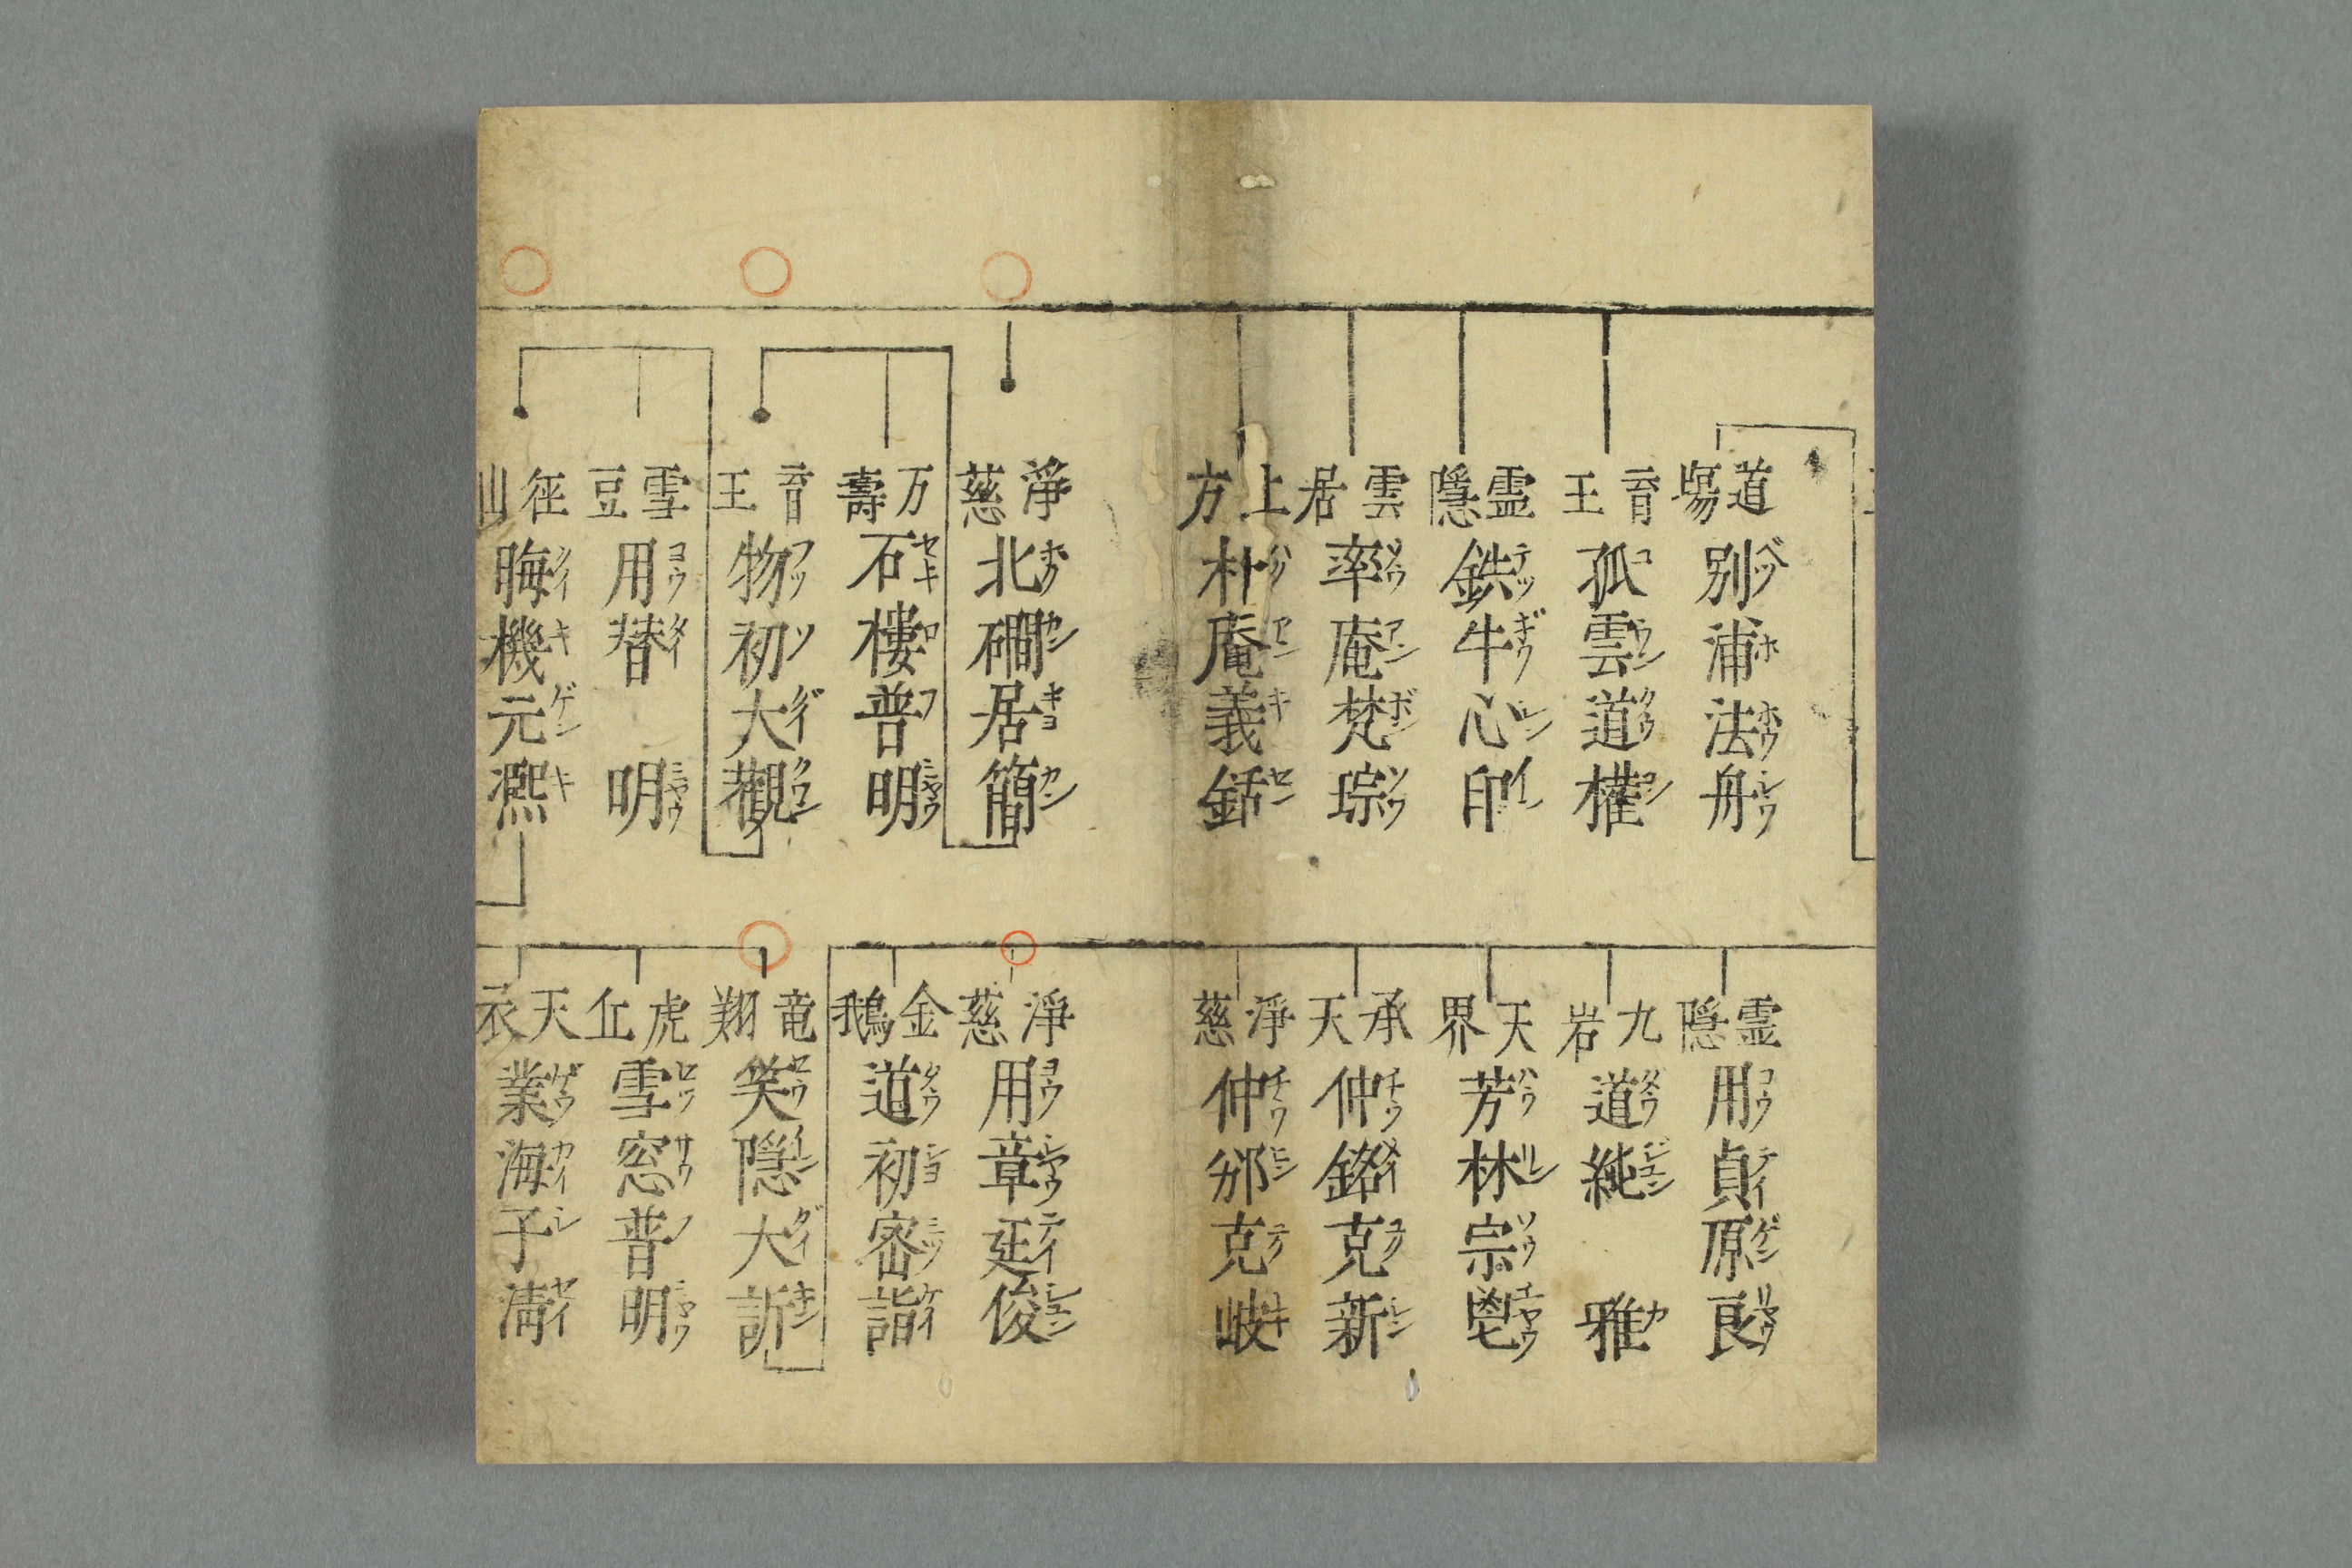 道場 別浦法舟
育王 孤雲道權
霊隱 鉄牛心印
雲居 率庵梵琮
上方 朴庵義銛
霊隠 用貞原良
九岩 道純 雅
天界 芳林宗鬯
承天 仲銘克新
淨慈 仲邠克岐
淨慈 北磵居簡
万壽 石樓普明
育王 物初大觀
雪豆 用替 明
徑山 晦機元熈
淨慈 用章延俊
金鵝 道初宻詣
竜翔 笑隠大訢
虎丘 雪窓普明
天衣 業海子清